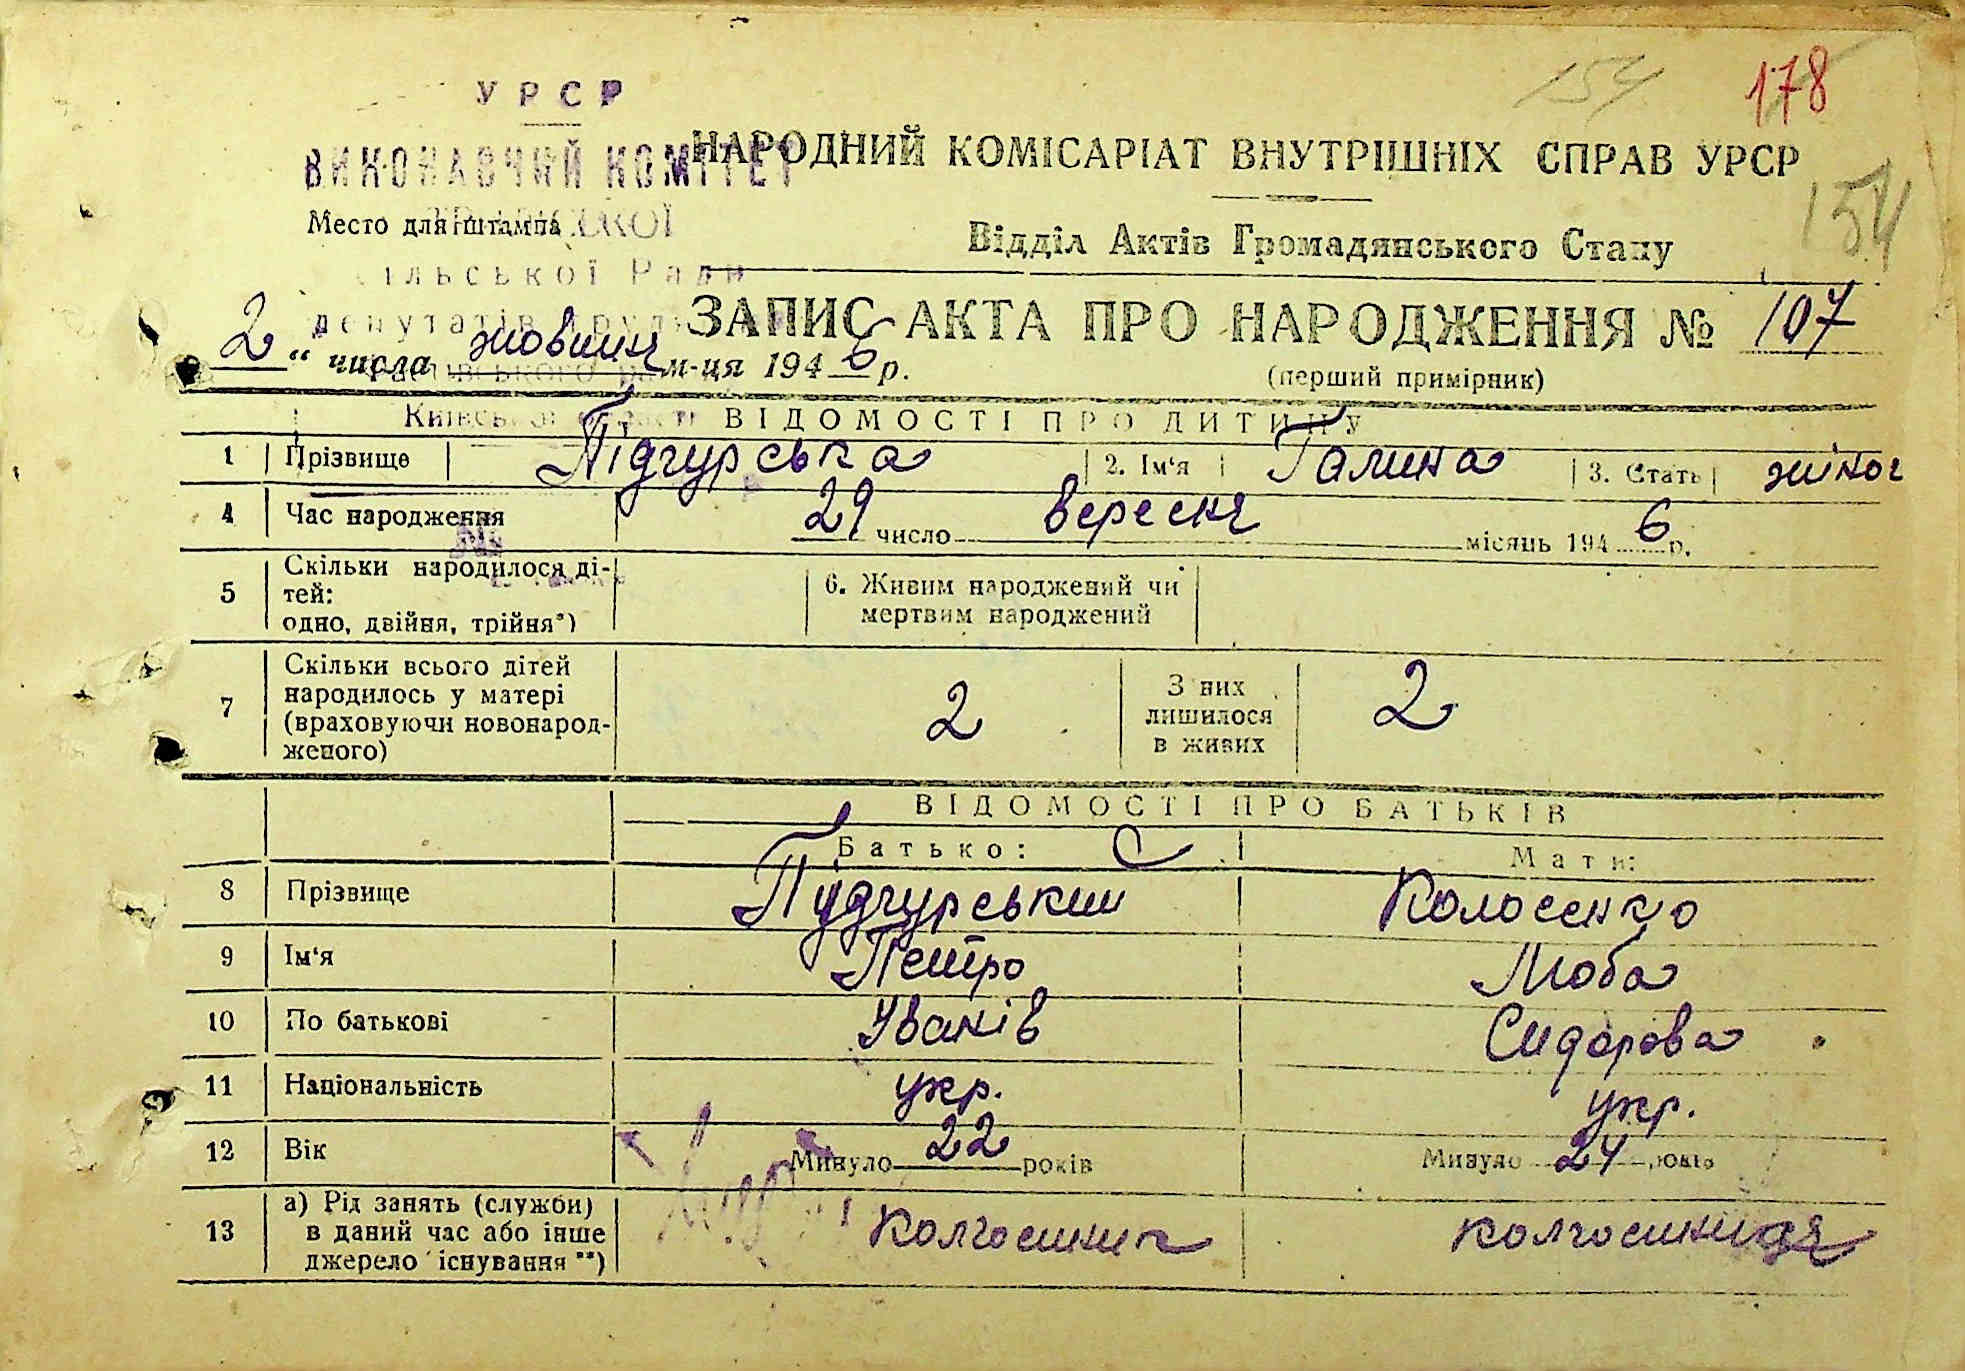 УРСР
154
178
ВИКОНАВЧИЙ КОМІТЕТ
НАРОДНИЙ КОМІСАРІАТ ВНУТРІШНІХ СПРАВ УРСР
Место для штампа
154
Відділ Актів Громадянського Стану
сільської Ради
депутатів
ЗАПИС АКТА ПРО НАРОДЖЕННЯ № 107
2 " числа жовтня м-ця 1946 р.
(перший примірник)
Київської області
ВІДОМОСТІ ПРО ДИТИНУ
1 Прізвище Підгурська 2. Ім'я Галина 3. Стать жіноч
4 Час народження 29 число вересня місяць 1946 р.
№
5 Скільки народилося ді-
тей:
одно, двійня, трійня*)
6. Живим народжений чи
мертвим народжений
7 Скільки всього дітей
народилось у матері
(враховуючи новонарод-
женого)
2
З них
лишилося
в живих
2
ВІДОМОСТІ ПРО БАТЬКІВ
Батько: Мати:
8 Прізвище Підгурський Колосенко
9 Ім'я Петро Люба
10 По батькові Іванів Сидорова
11 Національність укр. укр.
12 Вік Минуло 22 років Минуло 24 років
13 а) Рід занять (служби)
в даний час або інше
джерело існування **)
Колгоспник колгоспниця